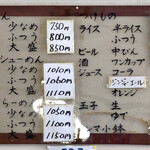 少なめ 750円
ふつう 800円
大盛 850円
シューめん
少なめ 1010円
ふつう 1060円
大盛 1110円
らーめん
少なめ 1050円
ふつう 1100円
大盛 1150円
つけもの
ライス 半ライス
ふつう
ビール 中びん
酒 ワンカップ
ジュース コーラ
ジンジャエール
オレンジ
玉子 生
ゆで
マ小鉢